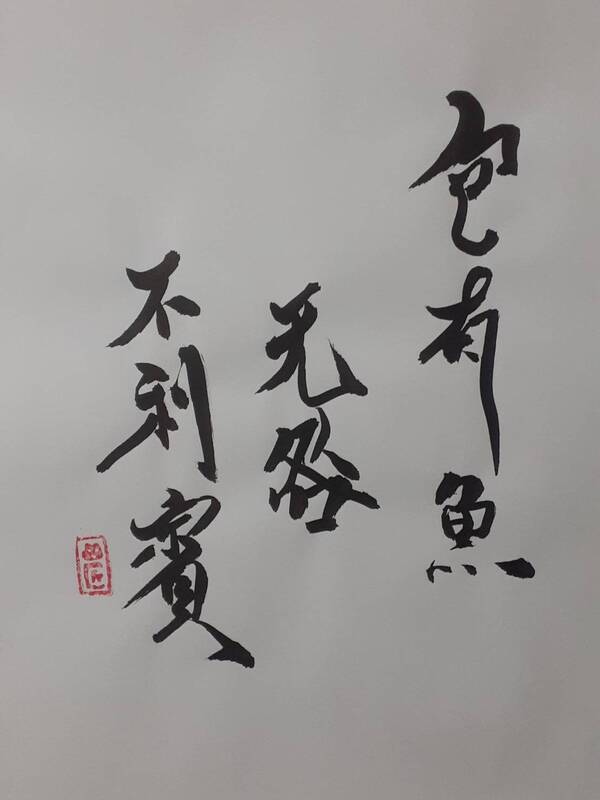 包有魚
无咎
不利賓